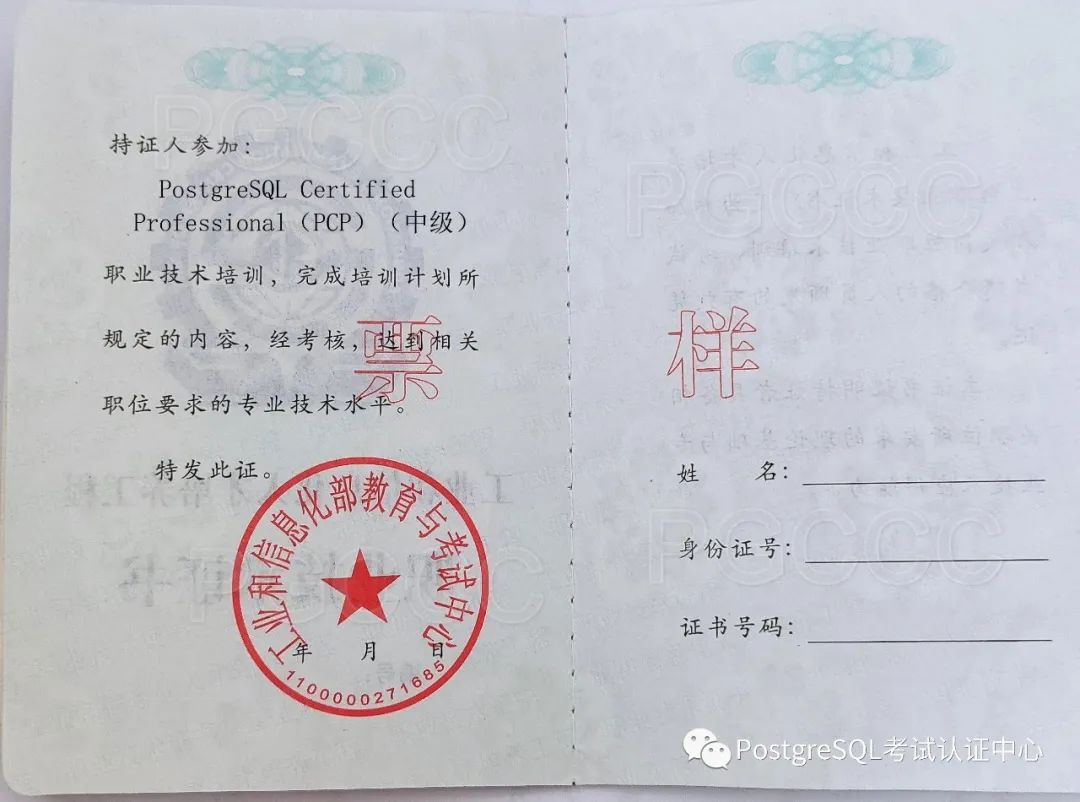 PGCCC
持证人参加：
PostgreSQL Certified
Professional（PCP）（中级）
职业技术培训，完成培训计划所
规定的内容，经考核，达到相关
职位要求的专业技术水平。
特发此证。
工业和信息化部教育与考试中心
年 月 日
1100000271685
票样
PGCCC
姓 名：
身份证号：
证书号码：
PGCCC
PGCCC
PostgreSQL考试认证中心